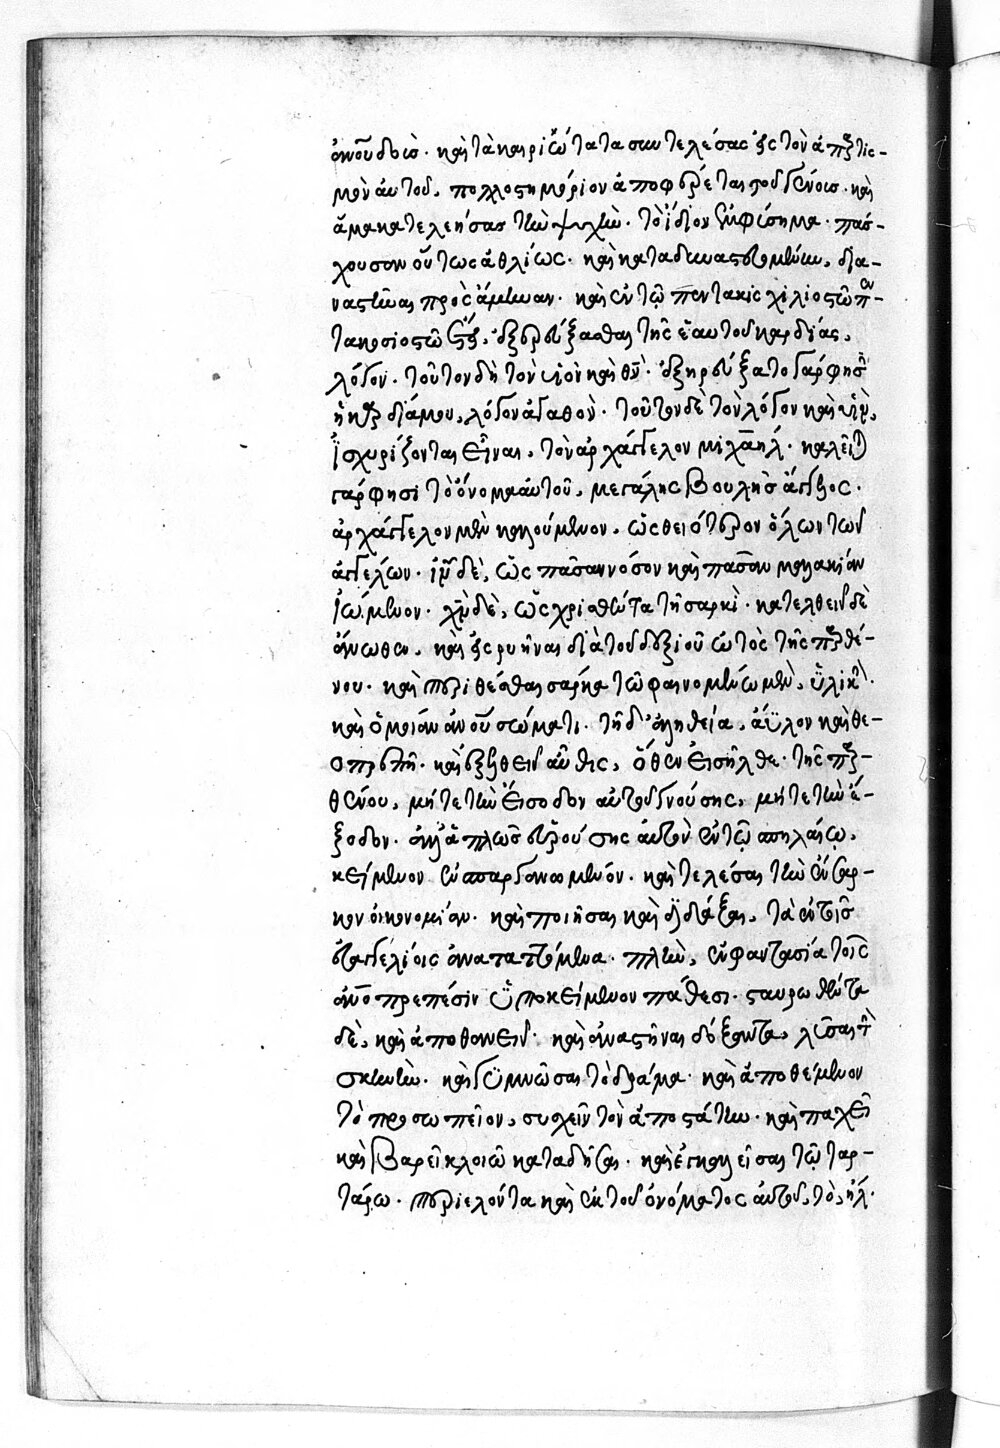 ἀνθρώποις. καὶ τὰ καιριώτατα συντελέσας εἰς τὸν ἀπαρτισ-
μὸν αὐτοῦ, πολλοστημόριον ἀποφέρεται τοῦ γένους. καὶ
ἅμα κατελεήσας τὴν ψυχὴν. τὸ ἴδιον ἐμφύσημα. πάσ-
χουσαν οὕτως ἀθλίως. καὶ καταδυναστευομένην, δια-
ναστῆναι πρὸς ἄμυναν. καὶ ἐν τῷ πεντακισχιλιοστῷ πεν-
τακοσιοστῷ ἔτει, ἐξερεύξασθαι τῆς ἑαυτοῦ καρδίας,
λόγον. τοῦτον δὴ τὸν υἱὸν καὶ θν̄. ἐξηρεύξατο γάρ φησιν
ἡ καρδία μου, λόγον ἀγαθὸν. τοῦτον δὲ τὸν λόγον καὶ υἱὸν,
ἰσχυρίζονται εἶναι, τὸν ἀρχάγγελον μιχαήλ. καλεῖται
γάρ φησι τὸ ὄνομα αὐτοῦ, μεγάλης βουλῆς ἄγγελος.
ἀρχάγγελον μὲν καλούμενον, ὡς θειότερον ὅλων τῶν
ἀγγέλων. ιν̄ δὲ, ὡς πᾶσαν νόσον καὶ πᾶσαν μαλακίαν
ἰώμενον. χν̄ δὲ, ὡς χρισθέντα τῇ σαρκὶ. κατελθεῖν δὲ
ἄνωθεν, καὶ εἰσρυῆναι διὰ τοῦ δεξιοῦ ὠτὸς τῆς παρθέ-
νου. καὶ περιθέσθαι σάρκα τῷ φαινομένῳ μὲν, ὑλικὴν
καὶ ὁμοίαν ἀνου σώματι. τῇ δ' ἀληθεία, ἄϋλον καὶ θε-
οπρεπῆ. καὶ ἐξελθεῖν αὖθις, ὅθεν εἰσῆλθε. τῆς παρ-
θένου, μήτε τὴν εἴσοδον αὐτοῦ γνούσης, μήτε τὴν ἔ-
ξοδον. ἀλλ' ἁπλῶς εὑρούσης αὐτὸν ἐν τῷ σπηλαίῳ,
κείμενον ἐσπαργανωμένον. καὶ τελέσαι τὴν ἔνσαρ-
κον οἰκονομίαν. καὶ ποιῆσαι καὶ διδάξαι, τὰ ἐν τοῖς
εὐαγγελίοις ἀναταττόμενα. πλὴν, ἐν φαντασία τοῖς
ἀνοπρεπέσιν ὑποκείμενον πάθεσι. σταυρωθέντα
δὲ, καὶ ἀποθανεῖν. καὶ ἀναστῆναι δόξαντα, λῦσαι τὴν
σκηνὴν. καὶ γυμνῶσαι τὸ δρᾶμα. καὶ ἀποθέμενον
τὸ προσωπεῖον, συσχεῖν τὸν ἀποστάτην. καὶ παχεῖ
καὶ βαρεῖ κλοιῷ καταδῆσαι. καὶ ἐγκλεῖσαι τῷ ταρ-
τάρῳ. περιελόντα καὶ ἐκ τοῦ ὀνόματος αὐτοῦ, τὸ, ήλ.